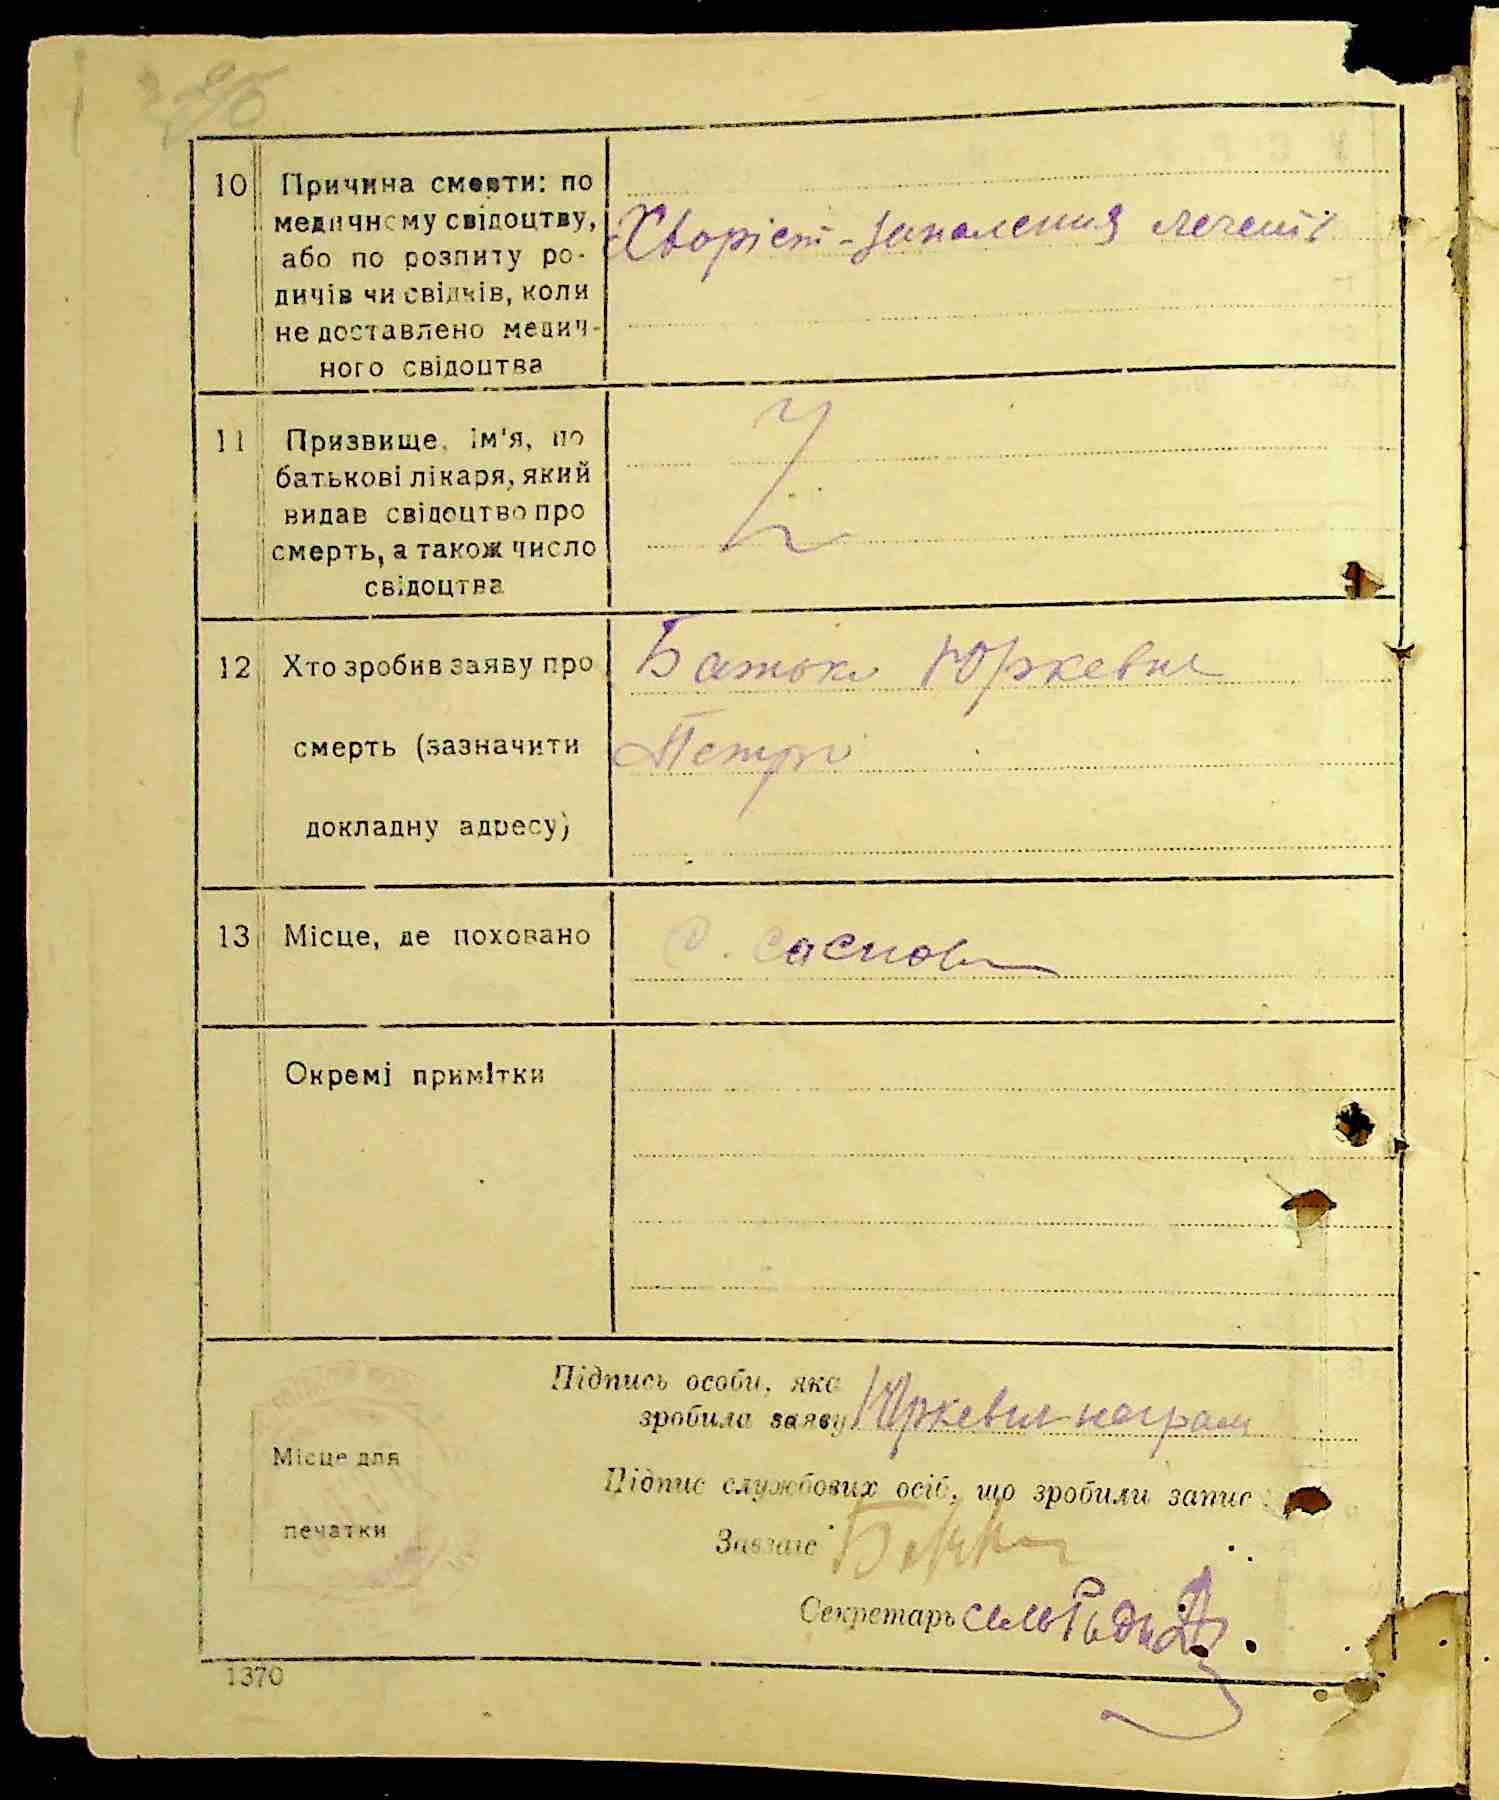 10 Причина смерти: по
медичному свідоцтву,
або по розпиту ро-
дичів чи свідків, коли
не доставлено медич-
ного свідоцтва
Хворієт - запалення легенів
11 Призвище, ім'я, по
батькові лікаря, який
видав свідоцтво про
смерть, а також число
свідоцтва
12 Хто зробив заяву про
смерть (зазначити
докладну адресу)
Батько Юркевич
Петро
13 Місце, де поховано
с. Саснов
Окремі примітки
Підпись особи, яка
зробила заяву Юркевич
Підпис службових осіб, що зробили запис:
Завзагс
Секретарь
Місце для
печатки
1370